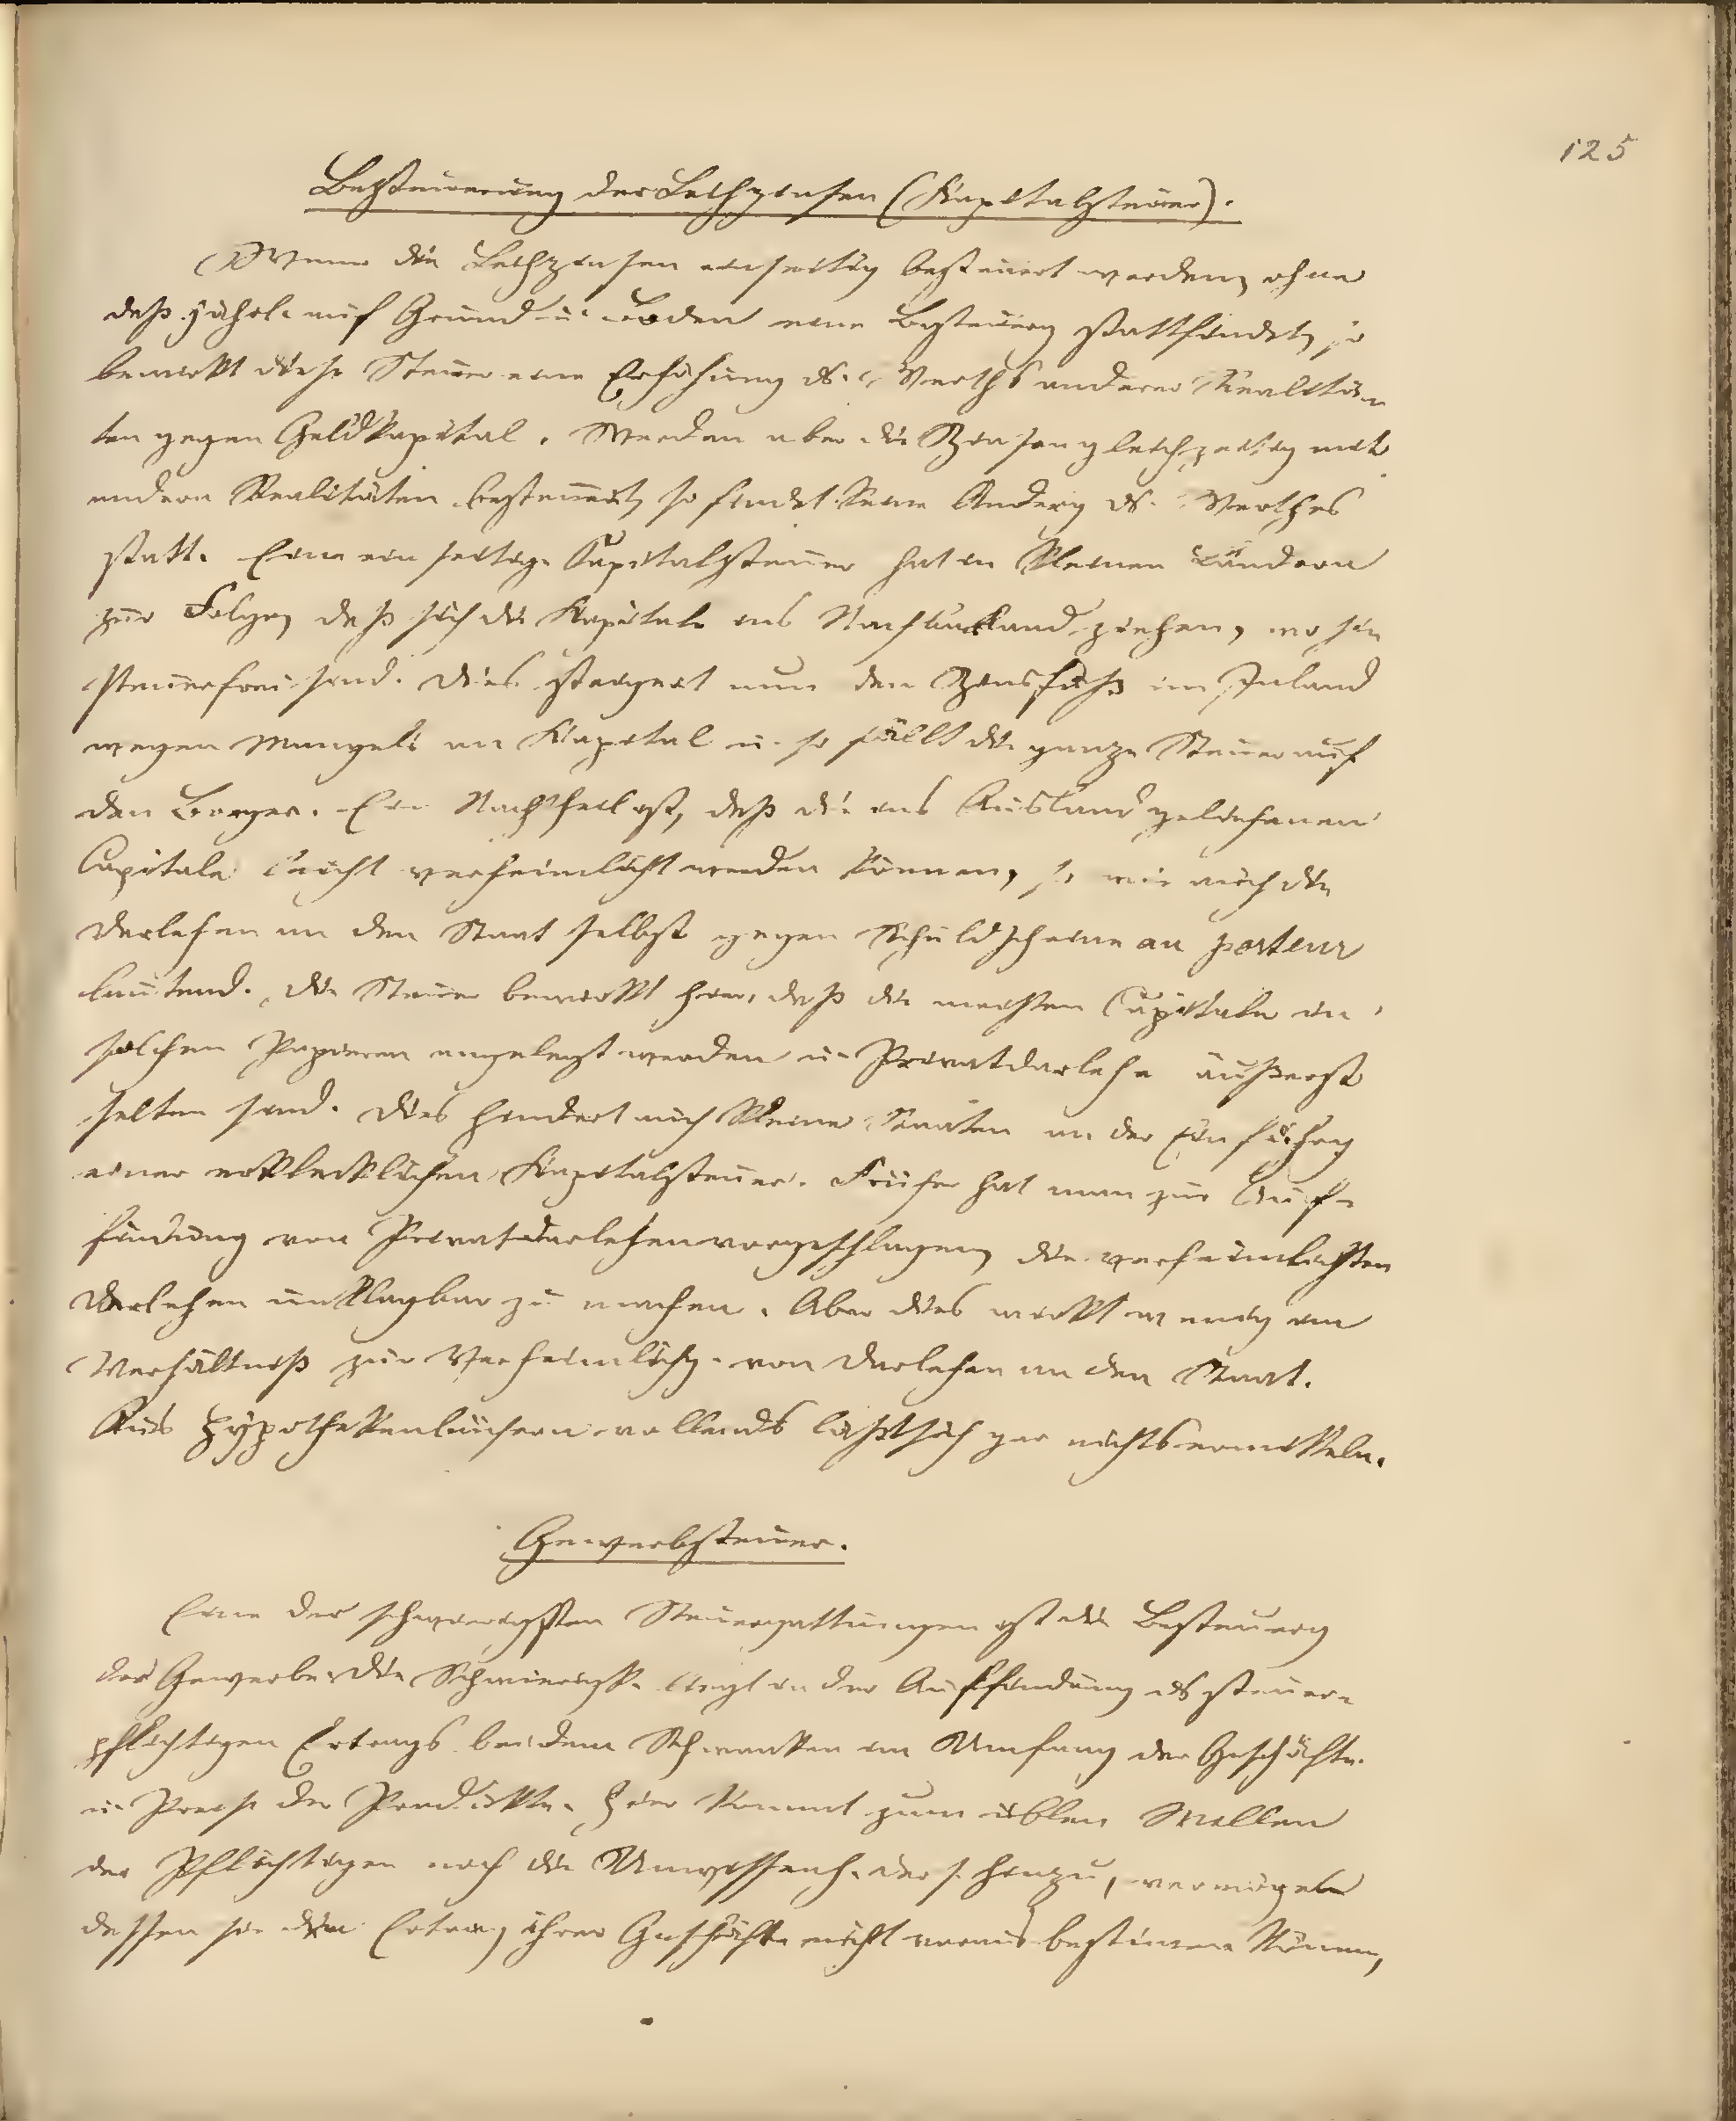 125
Besteuerung der Leihzinsen (Kapitalsteuer).
Wenn die Leihzinsen einseitig besteuert werden, ohne
daß jährl. auf Grund u. Boden eine Besteuerg stattfindet, so
bewirkt diese Steuer eine Erhöhung ds. Werths anderer Realitä-
ten gegen Geldkapital. Werden aber die Zinsen gleichzeitig mit
andern Realitäten besteuert, so findet keine Änderg ds. Werthes
statt. Eine einseitige Capitalsteuer hat in kleinen Ländern
zur Folge, daß sich die Kapitale ins Nachbarland ziehen, wo sie
steuerfrei sind. Dies steigert nun den Zinsfuß im Inland
wegen Mangels an Kapital u. so fällt die ganze Steuer auf
den Borger. Ein Nachtheil ist, daß die ins Ausland geliehenen
Capitale leicht verheimlicht werden können, so wie auch die
Darlehen an den Staat selbst gegen Schuldscheine au porteur
lautend. Die Steuer bewirkt hier, daß die meisten Capitale in
solchen Papieren angelegt werden u. Privatdarlehn äußerst
selten sind. Dies hindert auch kleine Staaten an der Einführg
einer erklecklichen Kapitalsteuer. Früher hat man zur Auf-
findung von Privatdarlehen vorgeschlagen, die verheimlichten
Darlehen unklagbar zu machen. Aber dies wirkt wenig im
Verhältniß zur Verheimlichg. von Darlehen an den Staat.
Aus Hypothekenbüchern vollends läßt sich gar nichts ermitteln.
Gewerbsteuer.
Eine der schwierigsten Steuergattungen ist die Besteuerg
der Gewerbe. Die Schwierigk. liegt in der Auffindung ds steuer-
pflichtigen Ertrags bei dem Schwanken im Umfang der Geschäfte
u. Preise der Produkte. Hier kommt zum üblen Wollen
der Pflichtigen noch die Unwissenh. ders. hinzu, vermöge
dessen sie den Ertrag ihrer Geschäfte nicht voraus bestimen könen,